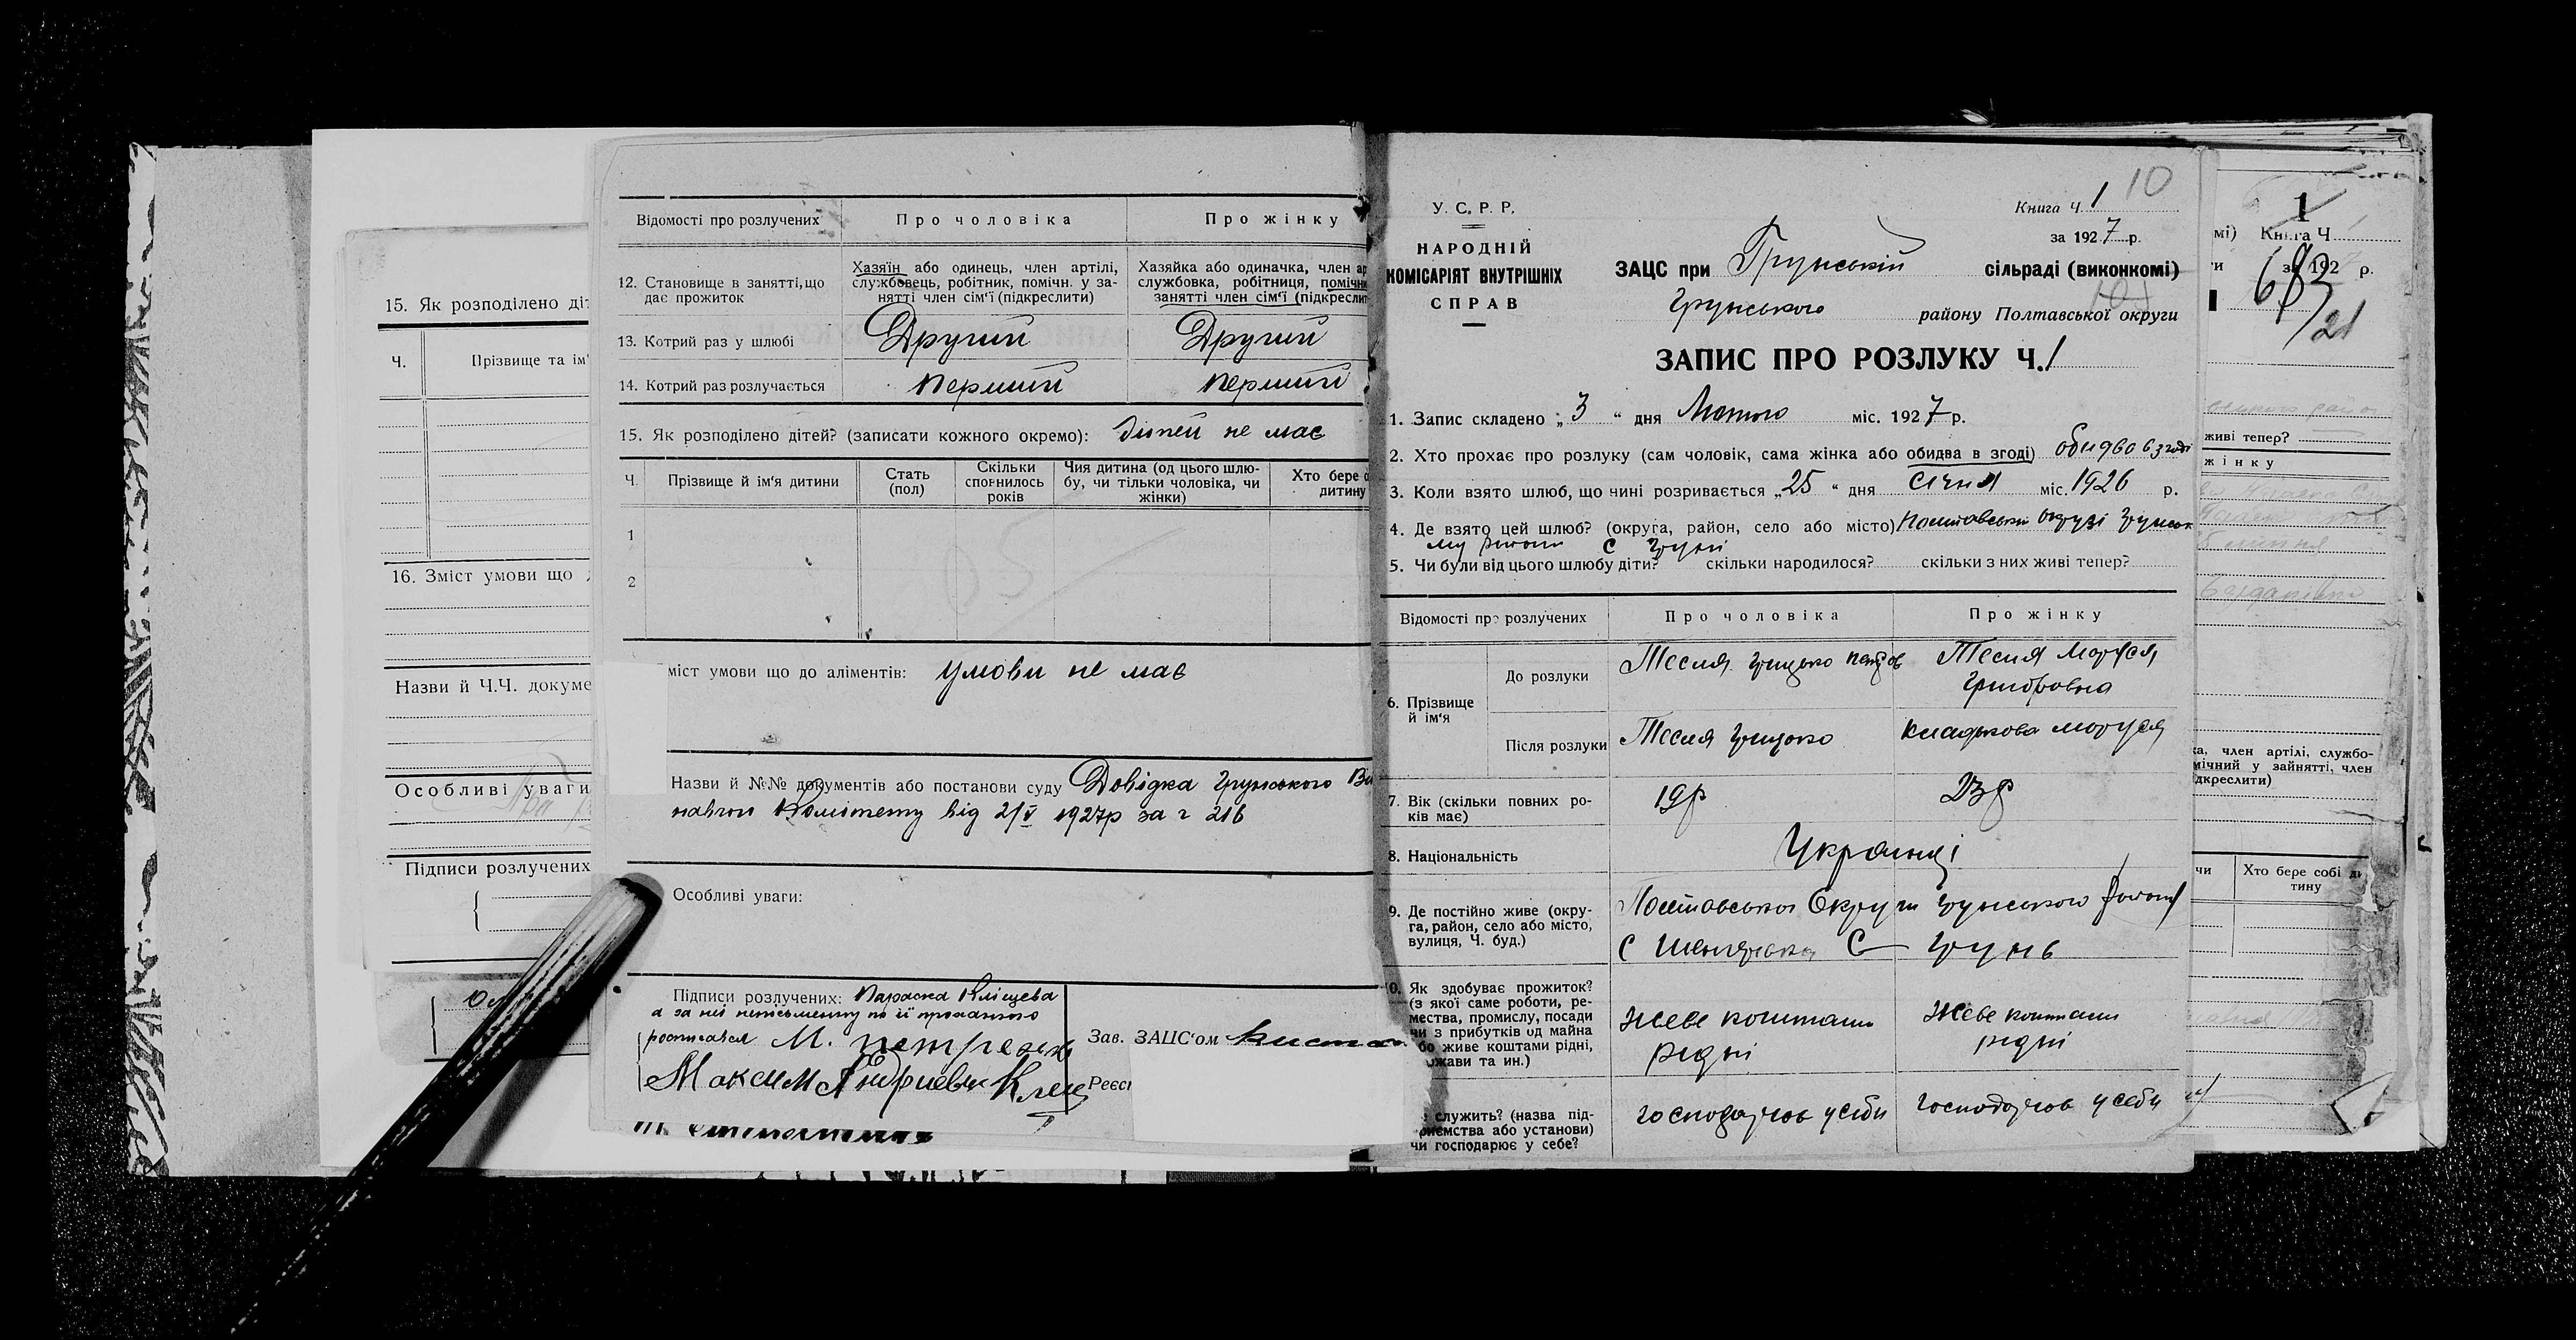 15. Як розподілено діт
Ч. Прізвище та ім'
16. Зміст умови що
Назви й Ч.Ч. докуме
Особливі уваги
Підписи розлучених
Відомості про розлучених Про чоловіка Про жінку
12. Становище в занятті, що дає прожиток
Хазяїн або одинець, член артілі, службовець, робітник, помічн. у занятті член сім'ї (підкреслити)
Хазяйка або одиначка, член ар
службовка, робітниця, помічн
занятті член сім'ї (підкресли
13. Котрий раз у шлюбі Другий Другий
14. Котрий раз розлучається перший перший
15. Як розподілено дітей? (записати кожного окремо): дитей не має
Ч. Прізвище й ім'я дитини Стать (пол) Скільки сповнилось років Чия дитина (од цього шлюбу, чи тільки чоловіка, чи жінки) Хто бере с дитину
1
2
міст умови що до аліментів: умови не має
Назви й №№ документів або постанови суду Довідка Грунського Ви
комітету від 2/V 1927р за ч 216
Особливі уваги:
Підписи розлучених: Параска Кліщева
а за неї неписьменну по її проханню
росписався М. Петренко
Максим Андриевич Клещ
Зав. ЗАЦС'ом
Реєс
10
У. С. Р. Р.
НАРОДНІЙ
КОМІСАРІЯТ ВНУТРІШНІХ
СПРАВ
Книга Ч. 1
за 1927 р.
ЗАЦС при Грунській сільраді (виконкомі)
Грунського району Полтавської округи
ЗАПИС ПРО РОЗЛУКУ Ч. 1
1. Запис складено „3“ дня Лютого міс. 1927 р.
2. Хто прохає про розлуку (сам чоловік, сама жінка або обидва в згоді) обидво в згоді
3. Коли взято шлюб, що нині розривається „25“ дня січня міс. 1926 р.
4. Де взято цей шлюб? (округа, район, село або місто) Полтавській окрузі Грунськ
му районі с Груні
5. Чи були від цього шлюбу діти? скільки народилося? скільки з них живі тепер?
Відомості про розлучених Про чоловіка Про жінку
6. Прізвище й ім'я
До розлуки Тесля Грицько Петров Тесля Маруся
Григоровна
Після розлуки Тесля Грицько Маруся
7. Вік (скільки повних років має) 19р 23р
8. Національність Українці
9. Де постійно живе (округа, район, село або місто, вулиця, Ч. буд.)
Полтавської Округи Грунського району
С С Грунь
10. Як здобуває прожиток?
(з якої саме роботи, ремества, промислу, посади
чи з прибутків од майна
бо живе коштами рідні,
жави та ин.)
живе коштами рідні
живе коштами рідні
служить? (назва під-
риємства або установи)
чи господарює у себе?
господарює у себи господарює у себи
1
мі) Книга Ч.
ти за 192 р.
683/21
живі тепер?
жінку
ка, член артілі, службо-
мічний у зайнятті, член
дкреслити)
чи Хто бере собі ди
тину